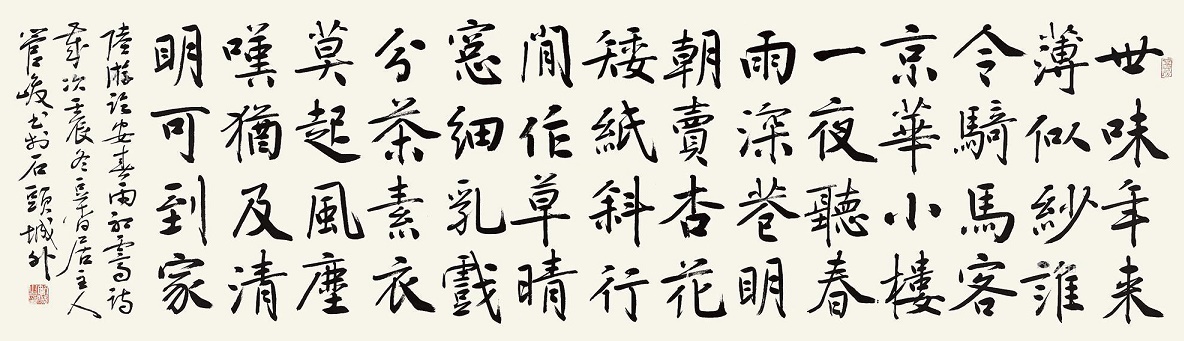 世味年来
薄似紗誰
令騎馬客
京華小樓
一夜聽春
雨深巷明
朝賣杏花
矮紙斜行
閒作草晴
窓細乳戲
分茶素衣
莫起風塵
嘆猶及清
明可到家
陸游臨安春雨初霽詩
歲次壬辰冬豆青居主人
管峻书於石頭城外